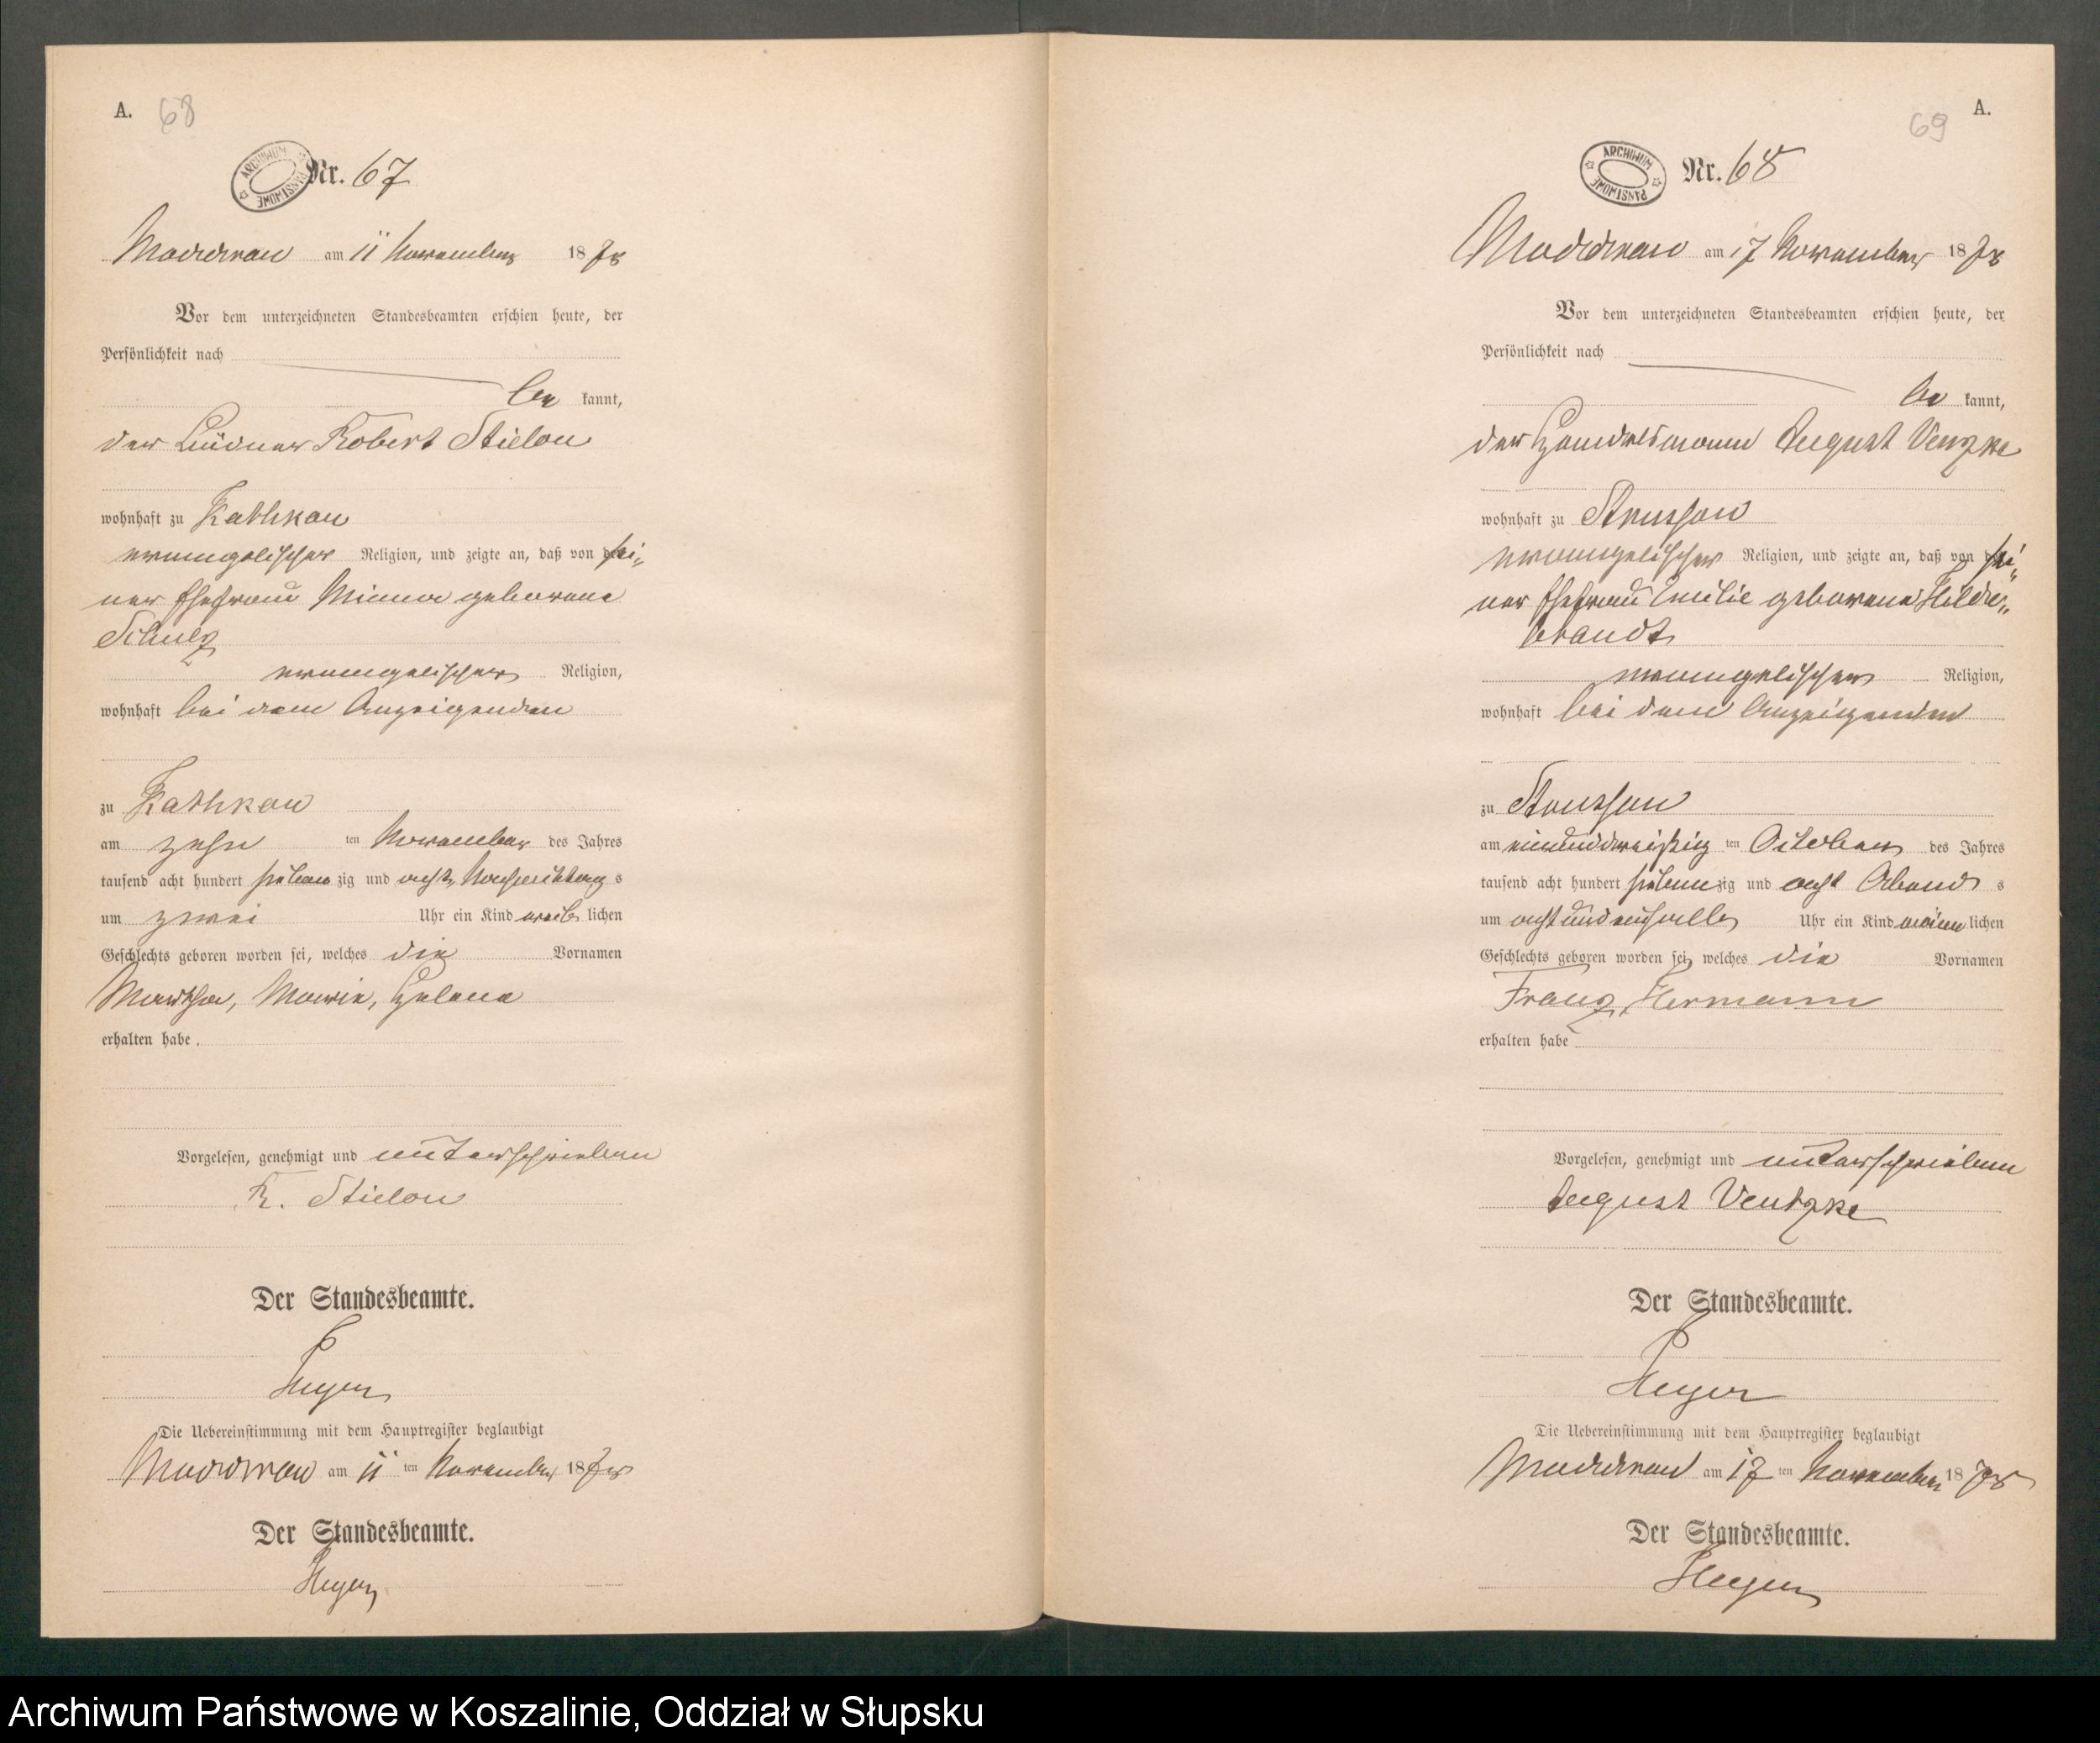 A. 68
ARCHIWUM PAŃSTWOWE
Nr. 67
Moddrow am 11 November 1878
Vor dem unterzeichneten Standesbeamten erschien heute, der
Persönlichkeit nach
be kannt,
der Büdner Robert Stielow
wohnhaft zu Kathkow
evangelischer Religion, und zeigte an, daß von sei-
ner Ehefrau Minna geborene
Schulz
evangelischer Religion,
wohnhaft bei dem Anzeigenden
zu Kathkow
am zehn ten November des Jahres
tausend acht hundert sieben zig und acht Nachmittag s
um zwei Uhr ein Kind weib lichen
Geschlechts geboren worden sei, welches die Vornamen
Martha, Marie, Helene
erhalten habe.
Vorgelesen, genehmigt und unterschrieben
R. Stielow
Der Standesbeamte.
Heyer
Die Uebereinstimmung mit dem Hauptregister beglaubigt
Moddrow am 11 ten November 1878
Der Standesbeamte.
Heyer
69 A.
ARCHIWUM PAŃSTWOWE
Nr. 68
Moddrow am 17 November 1878
Vor dem unterzeichneten Standesbeamten erschien heute, der
Persönlichkeit nach
be kannt,
der Handelsmann August Venzke
wohnhaft zu Strussow
evangelischer Religion, und zeigte an, daß von sei-
ner Ehefrau Emilie geborene Hilde-
brandt
evangelischer Religion,
wohnhaft bei dem Anzeigenden
zu Strussow
am einunddreißig ten October des Jahres
tausend acht hundert sieben zig und acht Abend s
um acht und einhalb Uhr ein Kind männ lichen
Geschlechts geboren worden sei, welches die Vornamen
Franz, Hermann
erhalten habe
Vorgelesen, genehmigt und unterschrieben
August Ventzke
Der Standesbeamte.
Heyer
Die Uebereinstimmung mit dem Hauptregister beglaubigt
Moddrow am 17 ten November 1878
Der Standesbeamte.
Heyer
Archiwum Państwowe w Koszalinie, Oddział w Słupsku